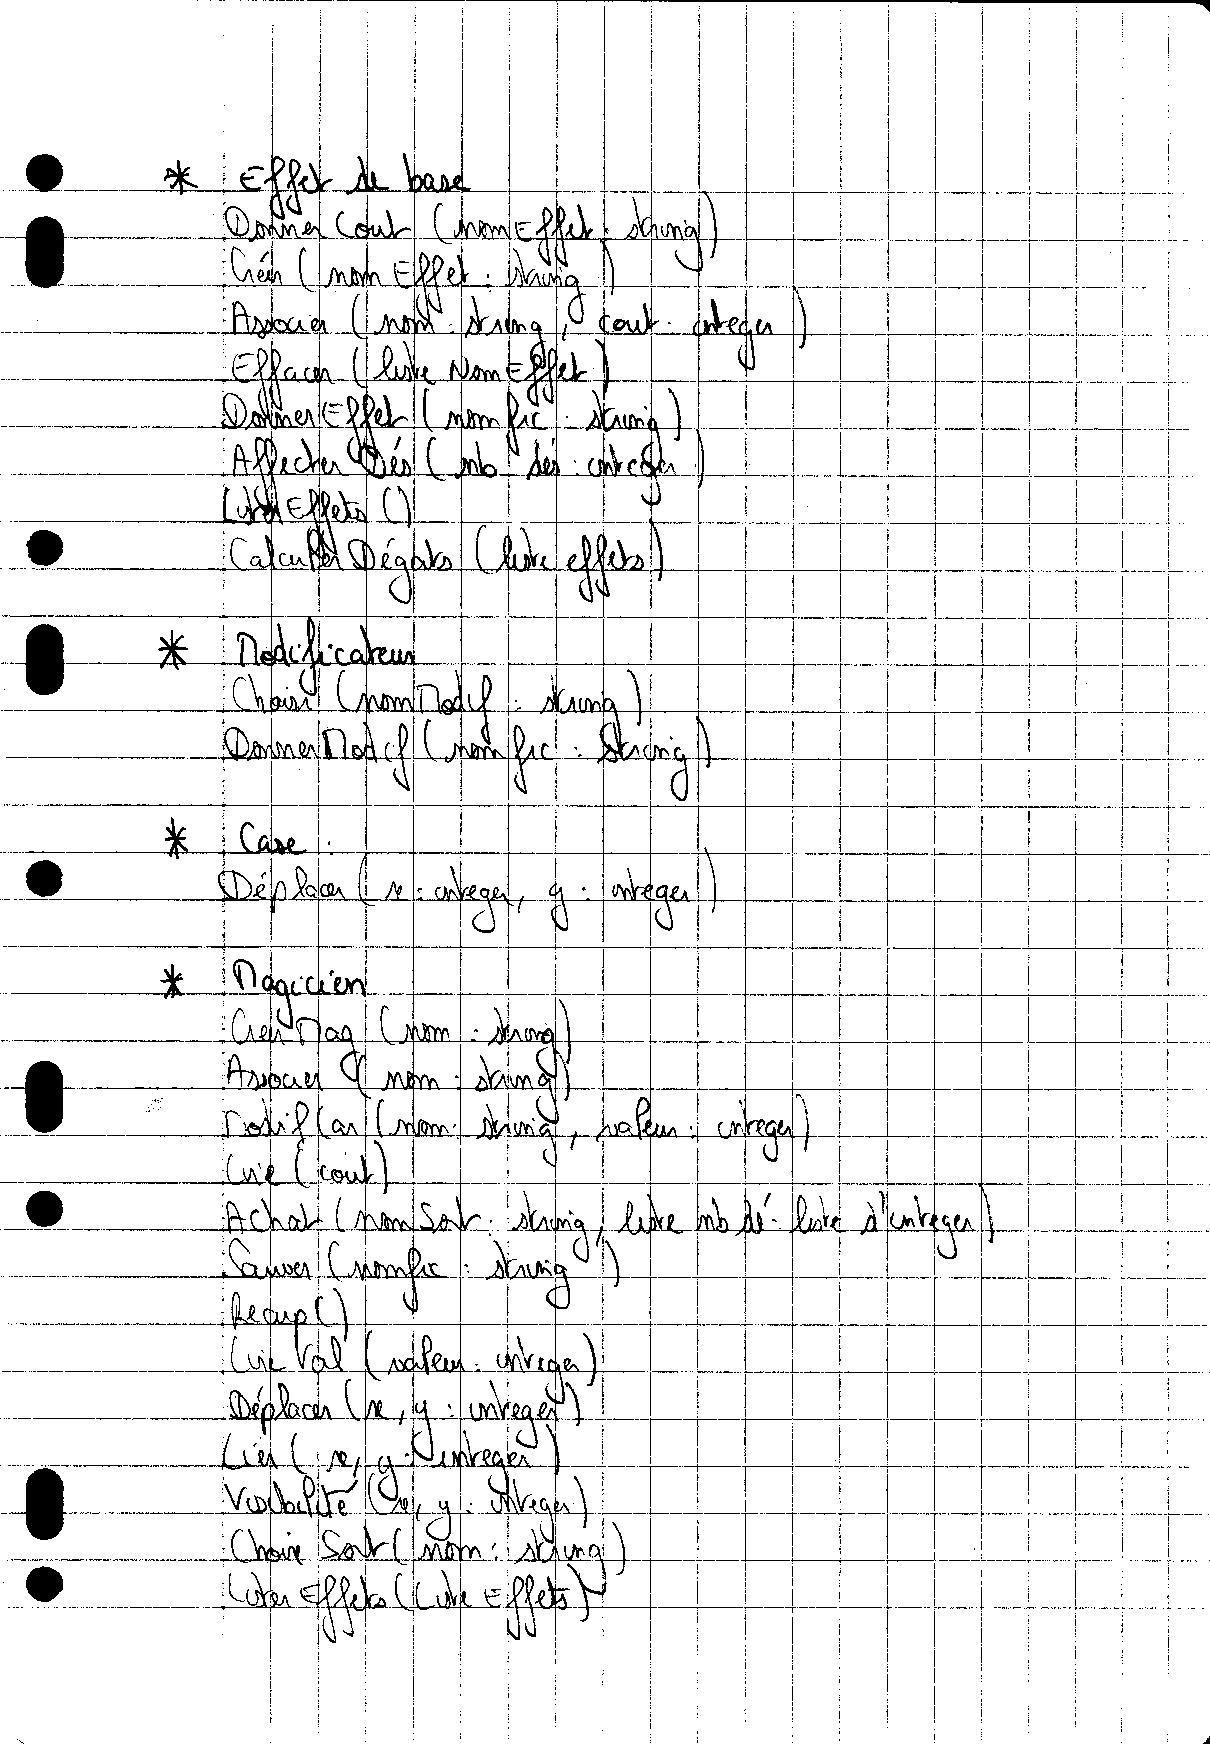 * Effet de base
DonnerCout (nomEffet : string)
Créer (nomEffet : string)
Associer (nom : string, cout : integer)
Effacer (liste NomEffet)
DonnerEffet (nomfic : string)
AffecterDés (nb dés : integer)
ListerEffets ()
CalculerDégats (liste effets)
* Modificateur
Choisir (nomModif : string)
DonnerModif (nomfic : String)
* Case :
Déplacer (x : integer, y : integer)
* Magicien
CréerMag (nom : string)
Associer (nom : string)
ModifCar (nom : string, valeur : integer)
Lire (cout)
Achat (nomSort : string, liste nb dé : liste d'integer)
Sauver (nomfic : string)
Recup ()
Lire Val (valeur : integer)
Déplacer (x, y : integer)
Lier (x, y : integer)
Visibilité (x, y : integer)
Choix Sort (nom : string)
Lister Effets (Liste Effets)